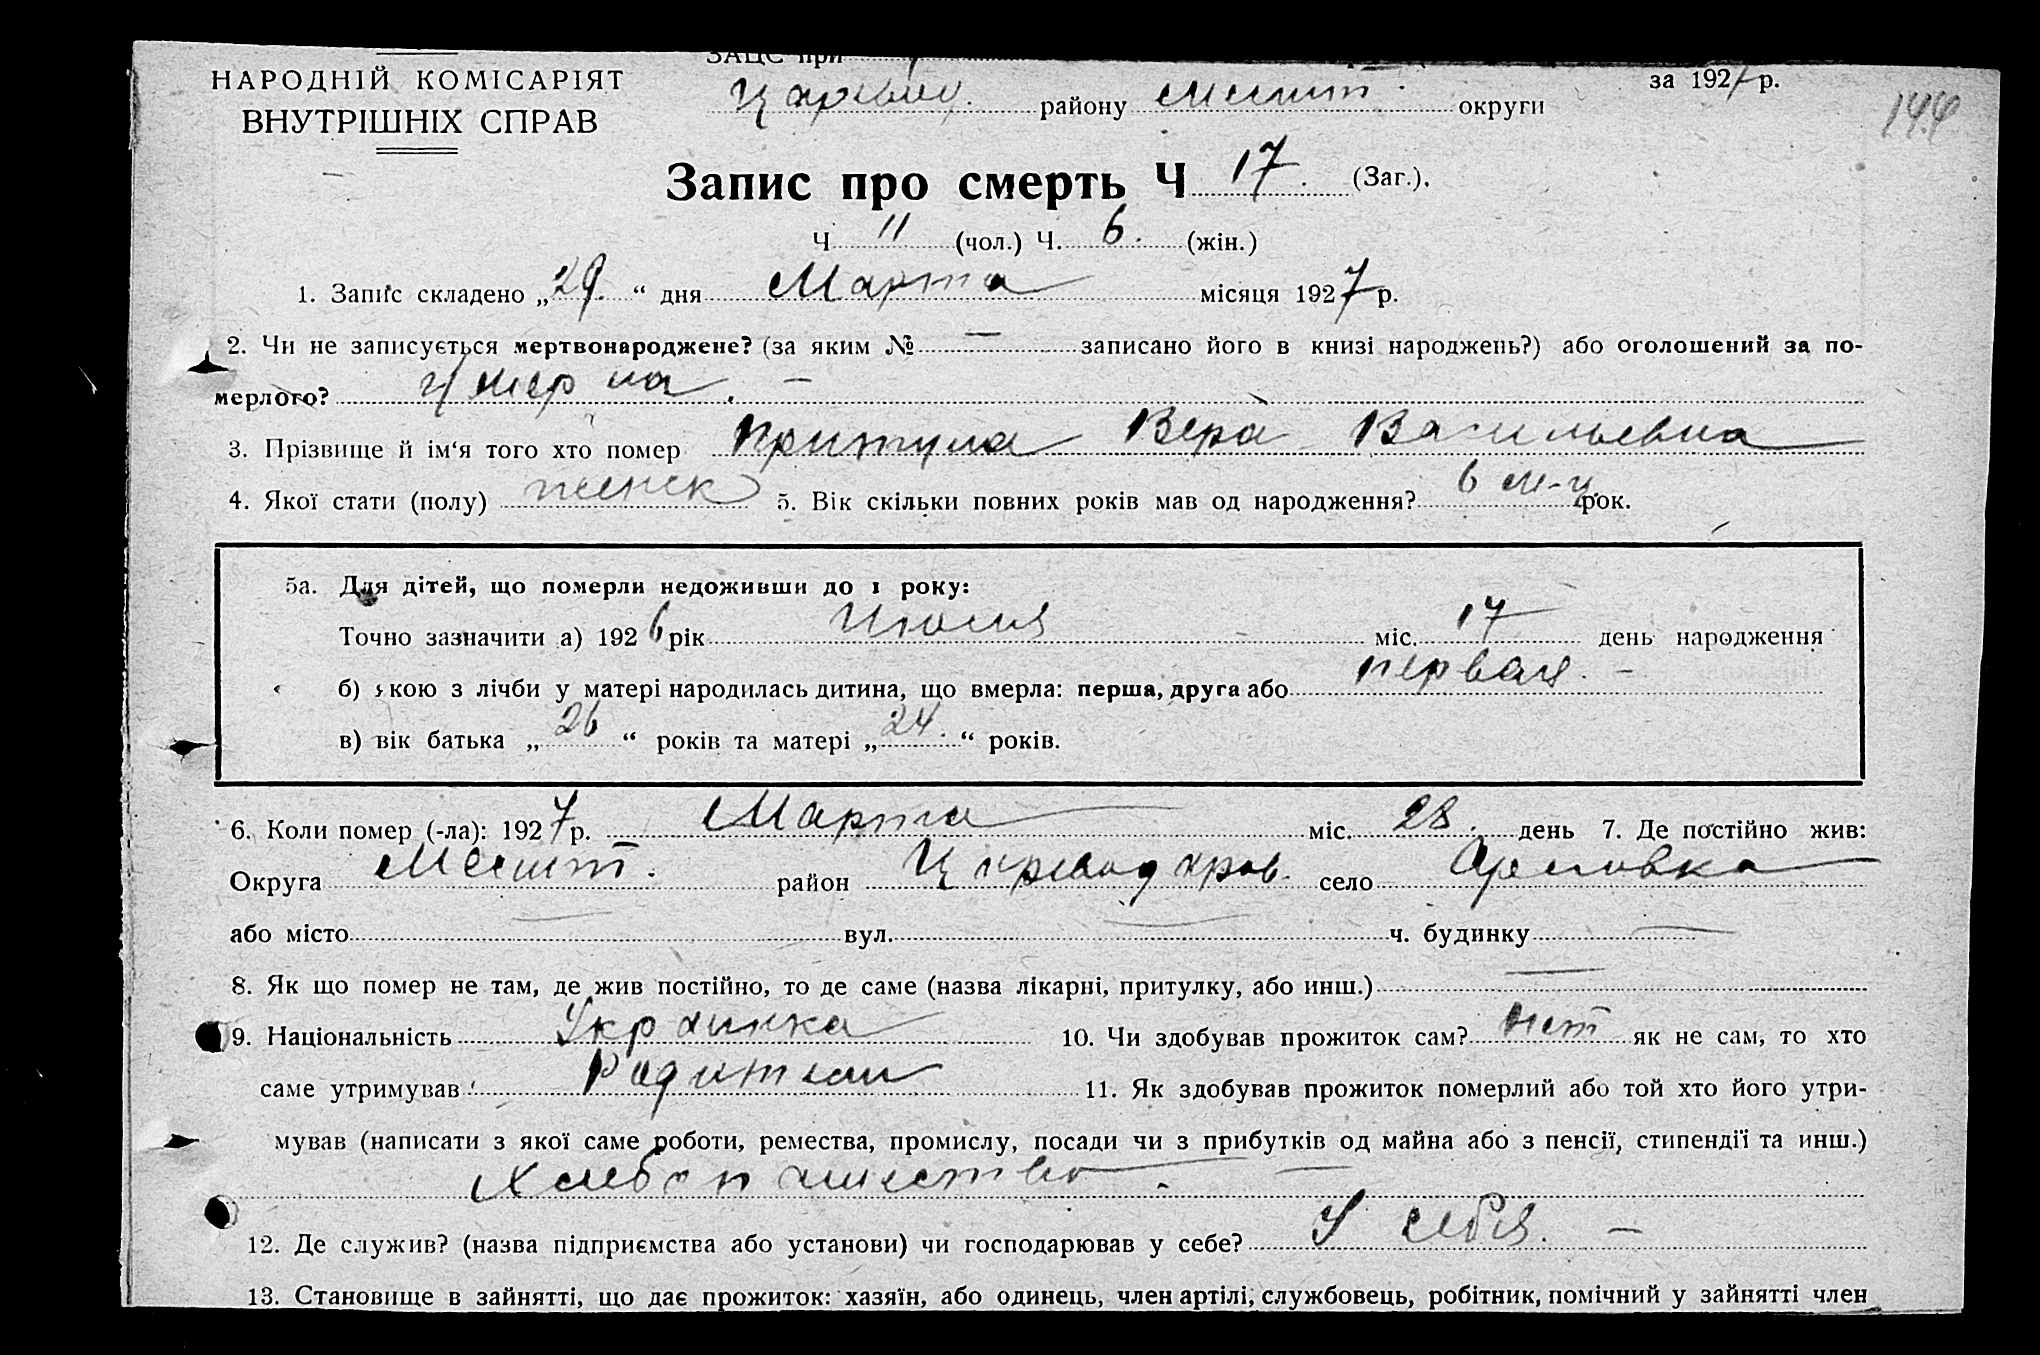 НАРОДНІЙ КОМІСАРІЯТ
ВНУТРІШНІХ СПРАВ
ЗАЦС при
району Мелит. округи
за 1927 р.
144
Запис про смерть Ч 17. (Заг.).
Ч 11 (чол.) Ч. 6. (жін.)
1. Запис складено „29.“ дня Марта місяця 1927 р.
2. Чи не записується мертвонароджене? (за яким № — записано його в книзі народжень?) або оголошений за по-
мерлого? Умерла. —
3. Прізвище й ім‘я того хто помер Притула Вера Васильевна
4. Якої стати (полу) женск 5. Вік скільки повних років мав од народження? 6 м-ц. рок.
5а. Для дітей, що померли недоживши до 1 року:
Точно зазначити а) 1926 рік Июля міс. 17 день народження
б) якою з лічби у матері народилась дитина, що вмерла: перша, друга або первая. —
в) вік батька „26“ років та матері „24.“ років.
6. Коли помер (-ла): 1927 р. Марта міс. 28. день 7. Де постійно жив:
Округа Мелит. район село
або місто — вул. — ч. будинку —
8. Як що помер не там, де жив постійно, то де саме (назва лікарні, притулку, або инш.) —
9. Національність Украинка 10. Чи здобував прожиток сам? нет як не сам, то хто
саме утримував Родители 11. Як здобував прожиток померлий або той хто його утри-
мував (написати з якої саме роботи, ремества, промислу, посади чи з прибутків од майна або з пенсії, стипендії та инш.)
Хлебопашество. —
12. Де служив? (назва підприємства або установи) чи господарював у себе? У себя. —
13. Становище в зайнятті, що дає прожиток: хазяїн, або одинець, член артілі, службовець, робітник, помічний у зайнятті член